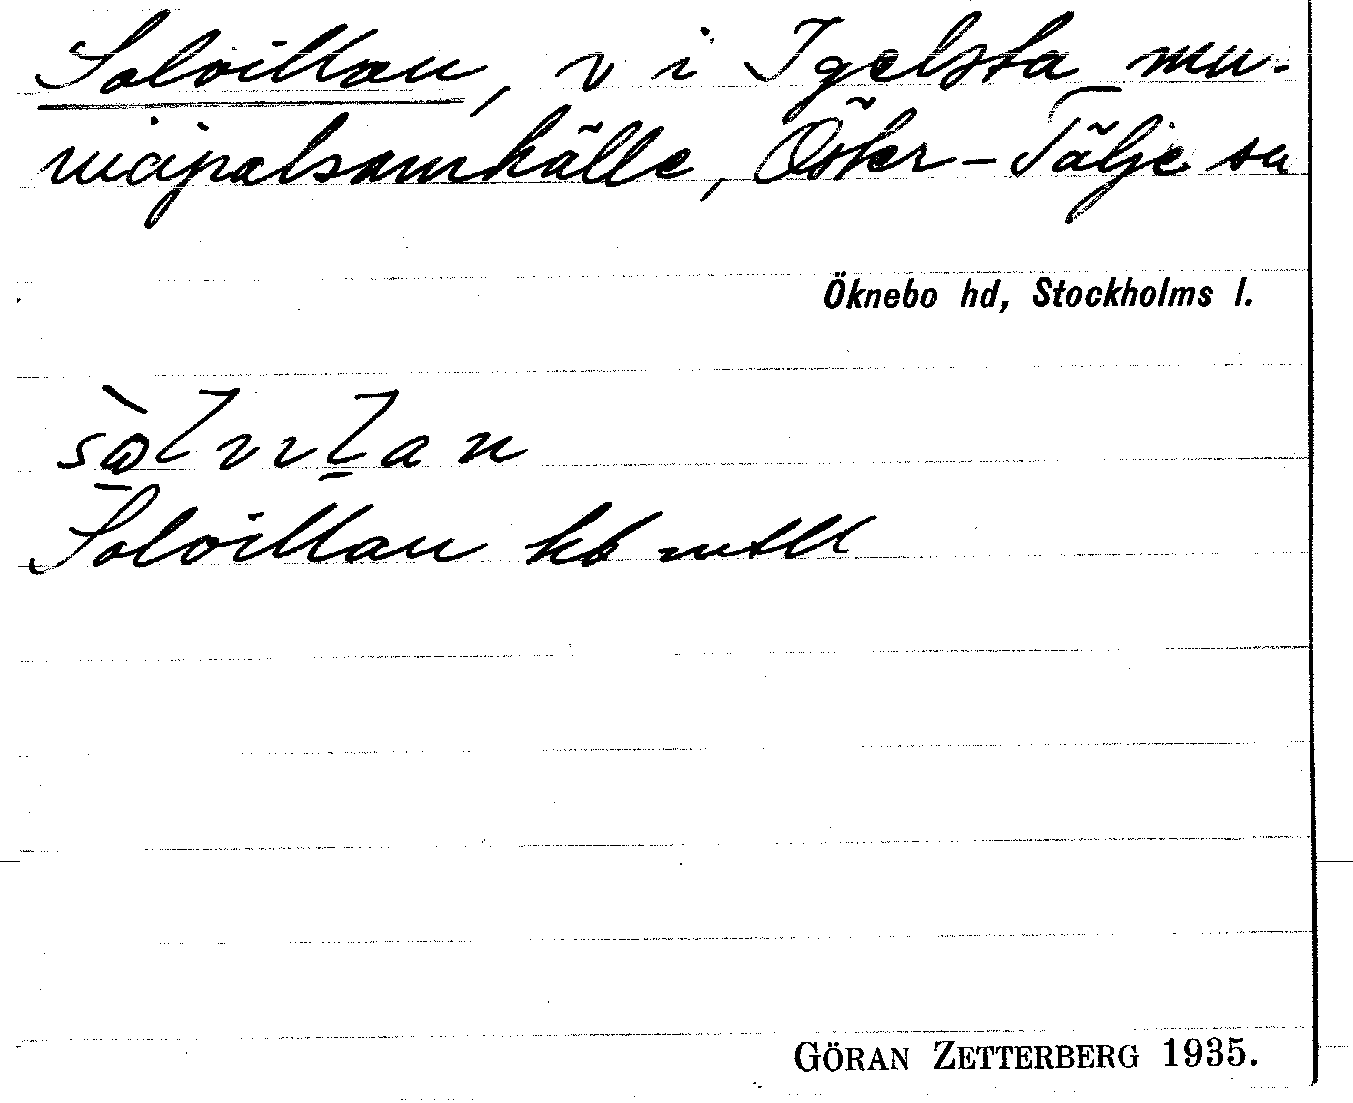 Solvillan, v i Igelsta mu-
nicipalsamhälle, Öster-Tälje sn
Öknebo hd, Stockholms l.
Solvillan kb mtll
GÖRAN ZETTERBERG 1935.